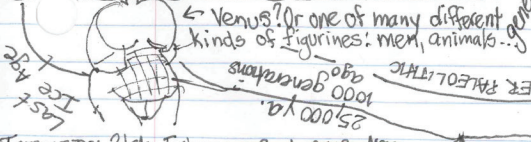 ← Venus? Or one of many different
kinds of figurines: men, animals...
Last
Ice Age
1000 generations
ago
25,000 y.a.
ER PALEOLITHIC